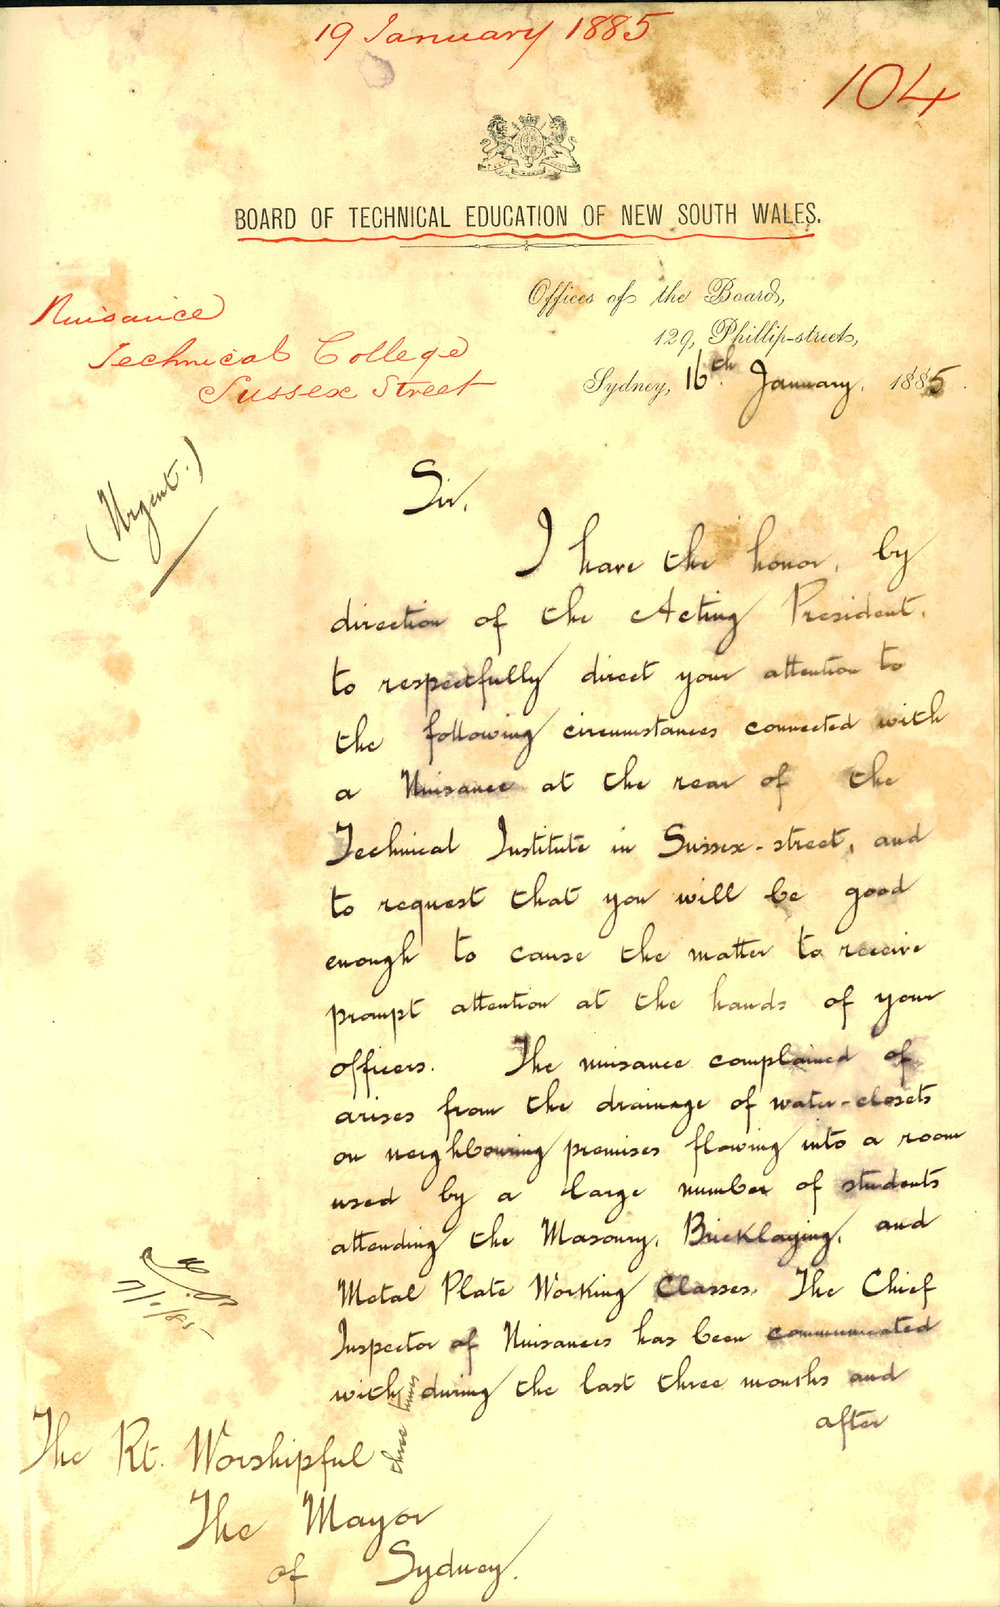 19 January 1885
104
BOARD OF TECHNICAL EDUCATION OF NEW SOUTH WALES.
Offices of the Board,
129, Phillip-street,
Sydney, 16th January. 1885.
Nuisance
Technical College
Sussex Street
(Urgent.)
Sir,
I have the honor, by
direction of the Acting President,
to respectfully direct your attention to
the following circumstances connected with
a Nuisance at the rear of the
Technical Institute in Sussex-street, and
to request that you will be good
enough to cause the matter to receive
prompt attention at the hands of your
officers. The nuisance complained of
arises from the drainage of water-closets
on neighbouring premises flowing into a room
used by a large number of students
attending the Masonry, Bricklaying, and
Metal Plate Working Classes. The Chief
Inspector of Nuisances has been communicated
with three times during the last three months and
after
The Rt. Worshipful
The Mayor
of Sydney.